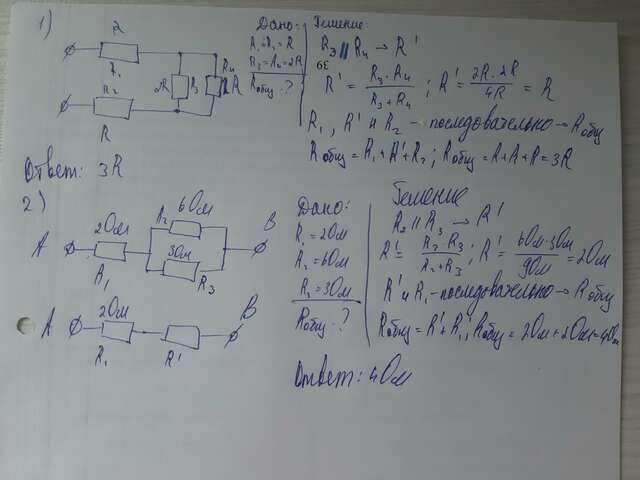 1)
R
R₁
2R
R₃
R₄
2R
R₂
R
Дано:
R₁=R₂=R
R₃=R₄=2R
Rобщ-?
Решение:
R₃ || R₄ → R'
R' = R₃·R₄ / R₃+R₄ ; R' = 2R·2R / 4R = R
R₁, R' и R₂ - последовательно → Rобщ
Rобщ = R₁+R'+R₂ ; Rобщ = R+R+R = 3R
Ответ: 3R
2)
A
2Ом
R₁
R₂
6Ом
3Ом
R₃
B
Дано:
R₁=2Ом
R₂=6Ом
R₃=3Ом
Rобщ-?
Решение
R₂ || R₃ → R'
R' = R₂·R₃ / R₂+R₃ ; R' = 6Ом·3Ом / 9Ом = 2Ом
R' и R₁ - последовательно → Rобщ
Rобщ = R'+R₁; Rобщ = 2Ом+2Ом=4Ом
A
2Ом
R₁
R'
B
Ответ: 4Ом